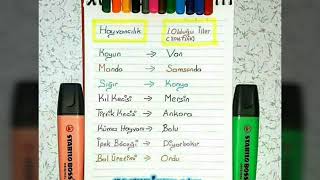 Hayvancılık 1.Olduğu İller
(ÜRETİM)
Koyun → Van
Manda → Samsunda
Sığır → Konya
Kıl Keçisi → Mersin
Tiftik Keçisi → Ankara
Kümes Hayvan → Bolu
İpek Böceği → Diyarbakır
Bal Üretimi → Ordu
STABILO BOSS
STABILO BOSS